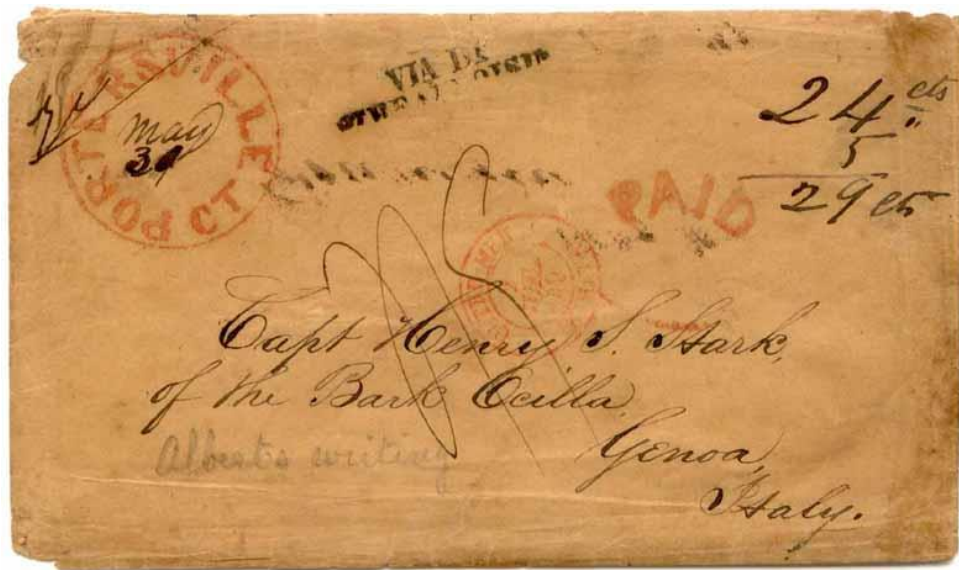 PORTERSVILLE CT
May
30
VIA DI
PAID
24 cts
5
29 cts
Capt Henry S. Stark,
of the Bark Ocilla
Genoa,
Italy.
Alberts writing